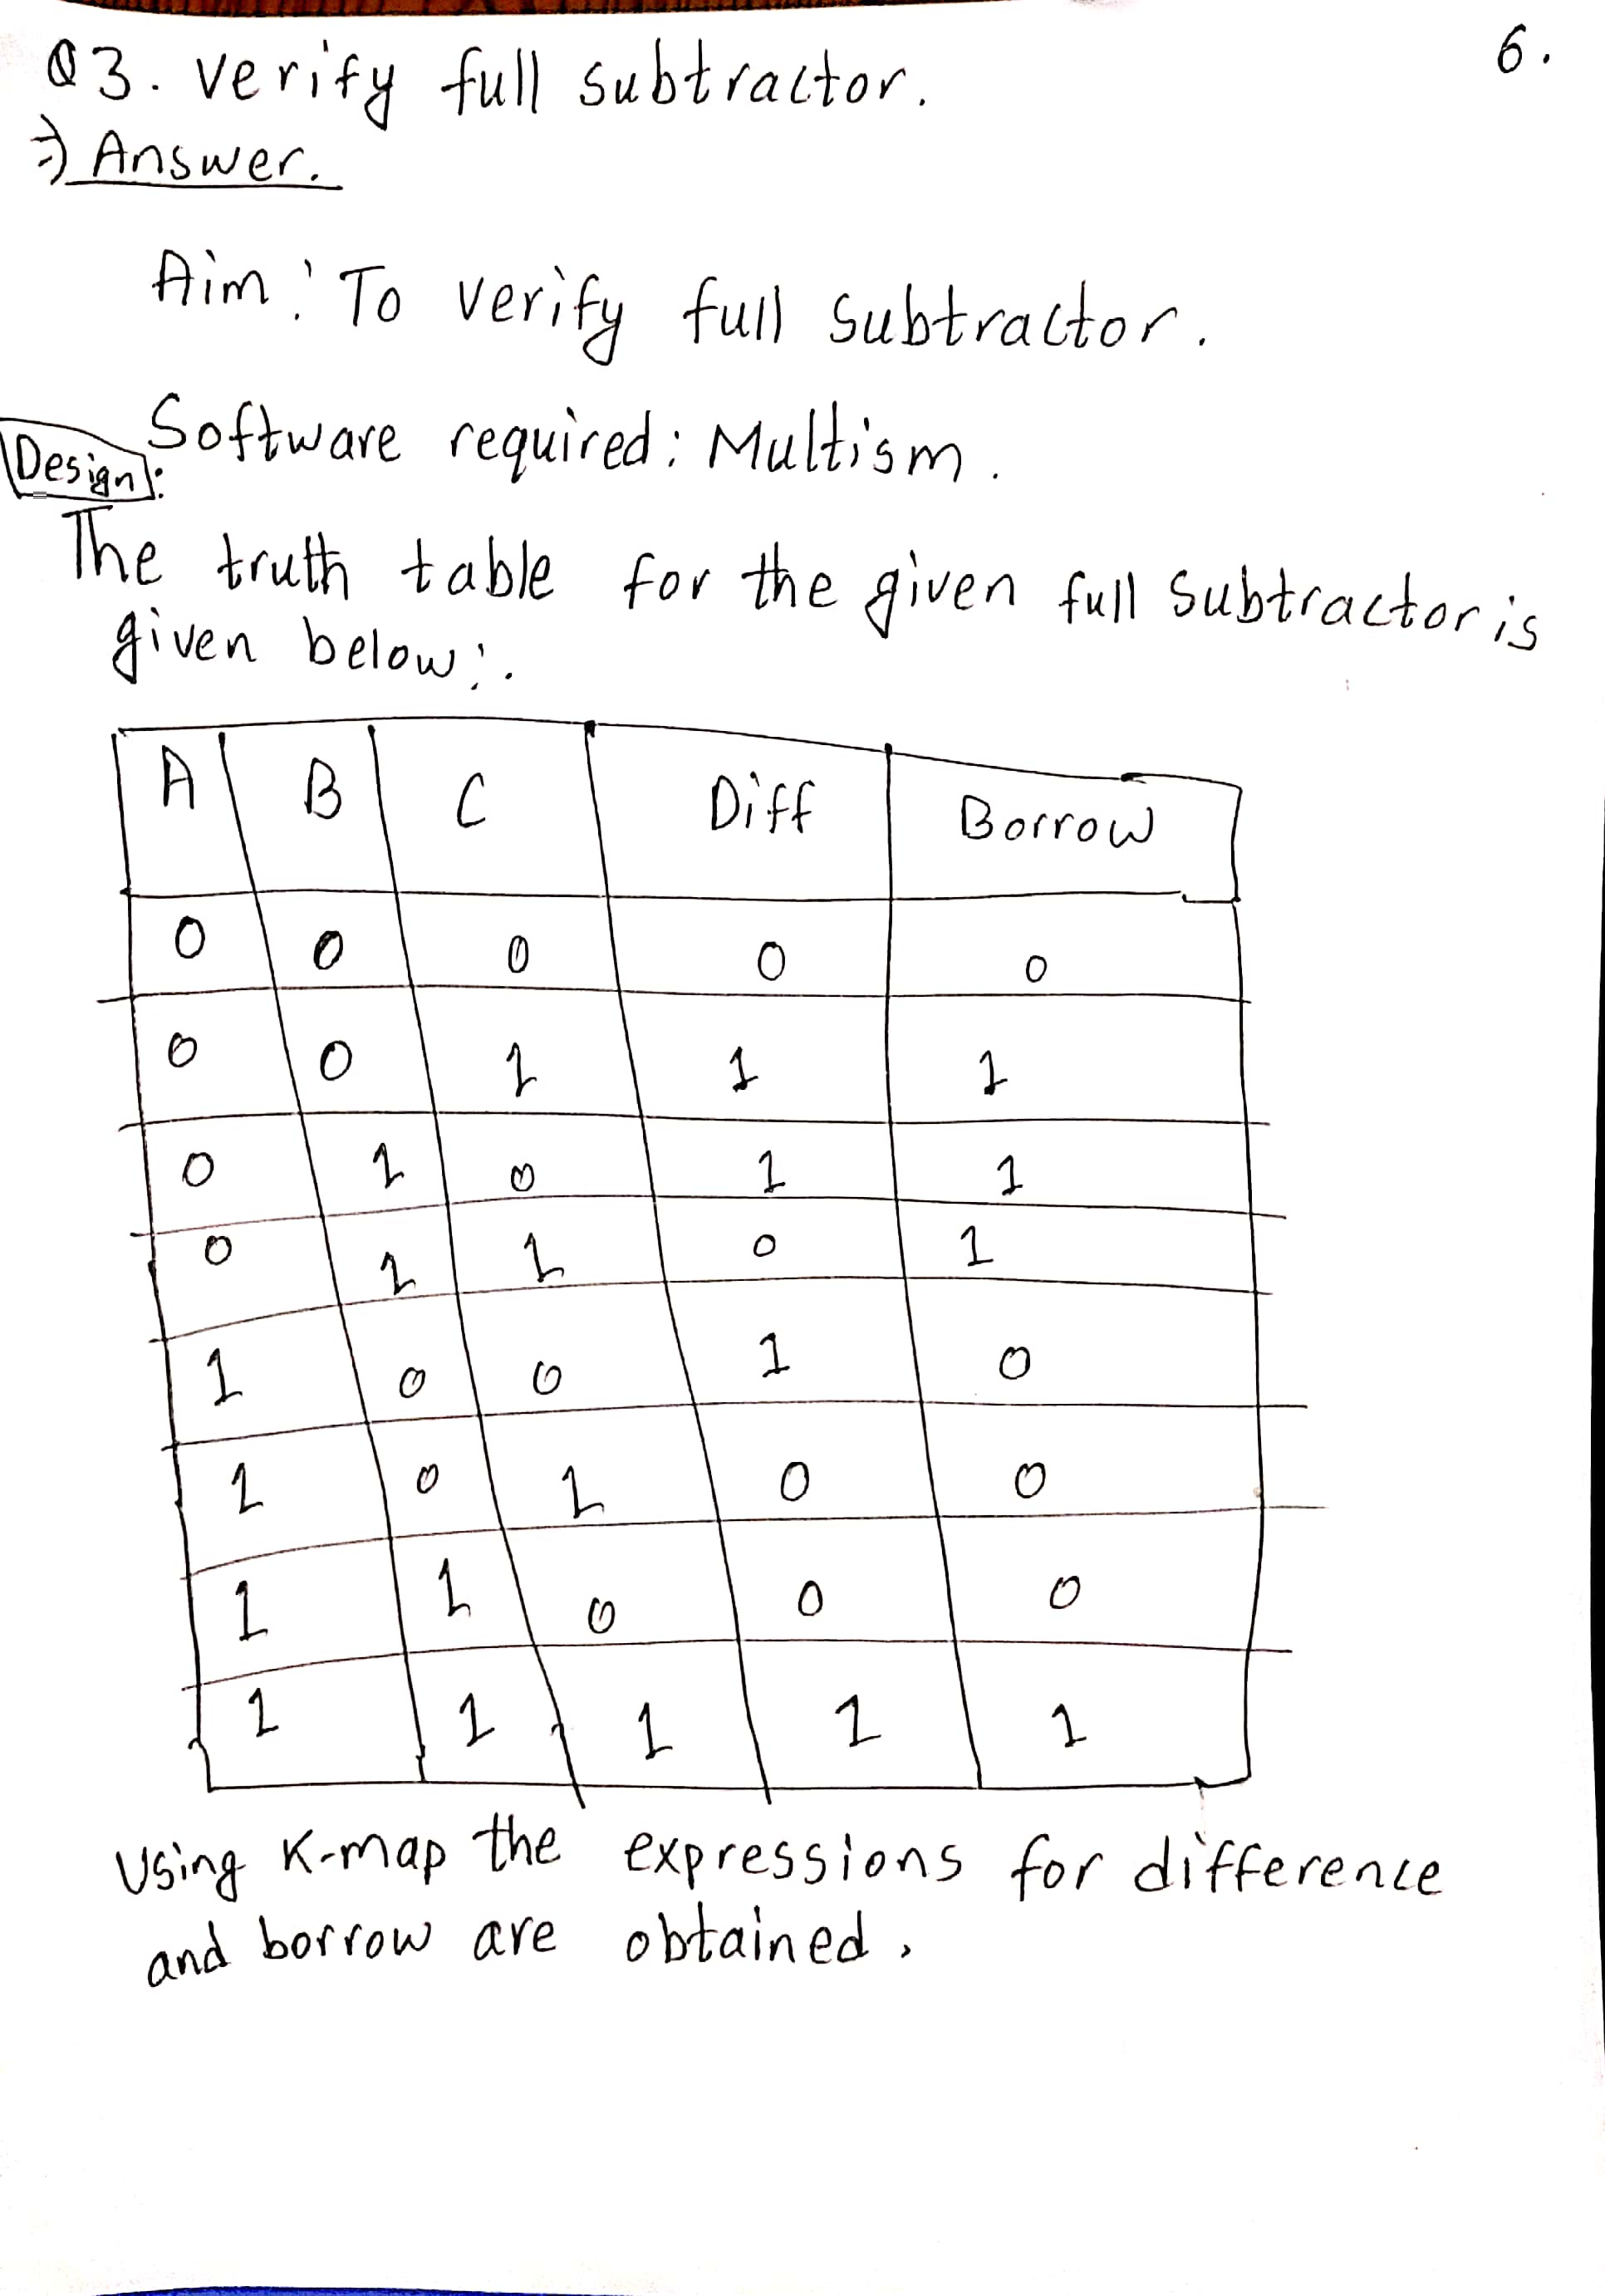 6.
Q3. verify full subtractor.
⇒ Answer.
Aim: To verify full subtractor.
Software required: Multism.
Design:
The truth table for the given full subtractor is
given below:.
A B C Diff Borrow
0 0 0 0 0
0 0 1 1 1
0 1 0 1 1
0 1 1 0 1
1 0 0 1 0
1 0 1 0 0
1 1 0 0 0
1 1 1 1 1
Using K-map the expressions for difference
and borrow are obtained.